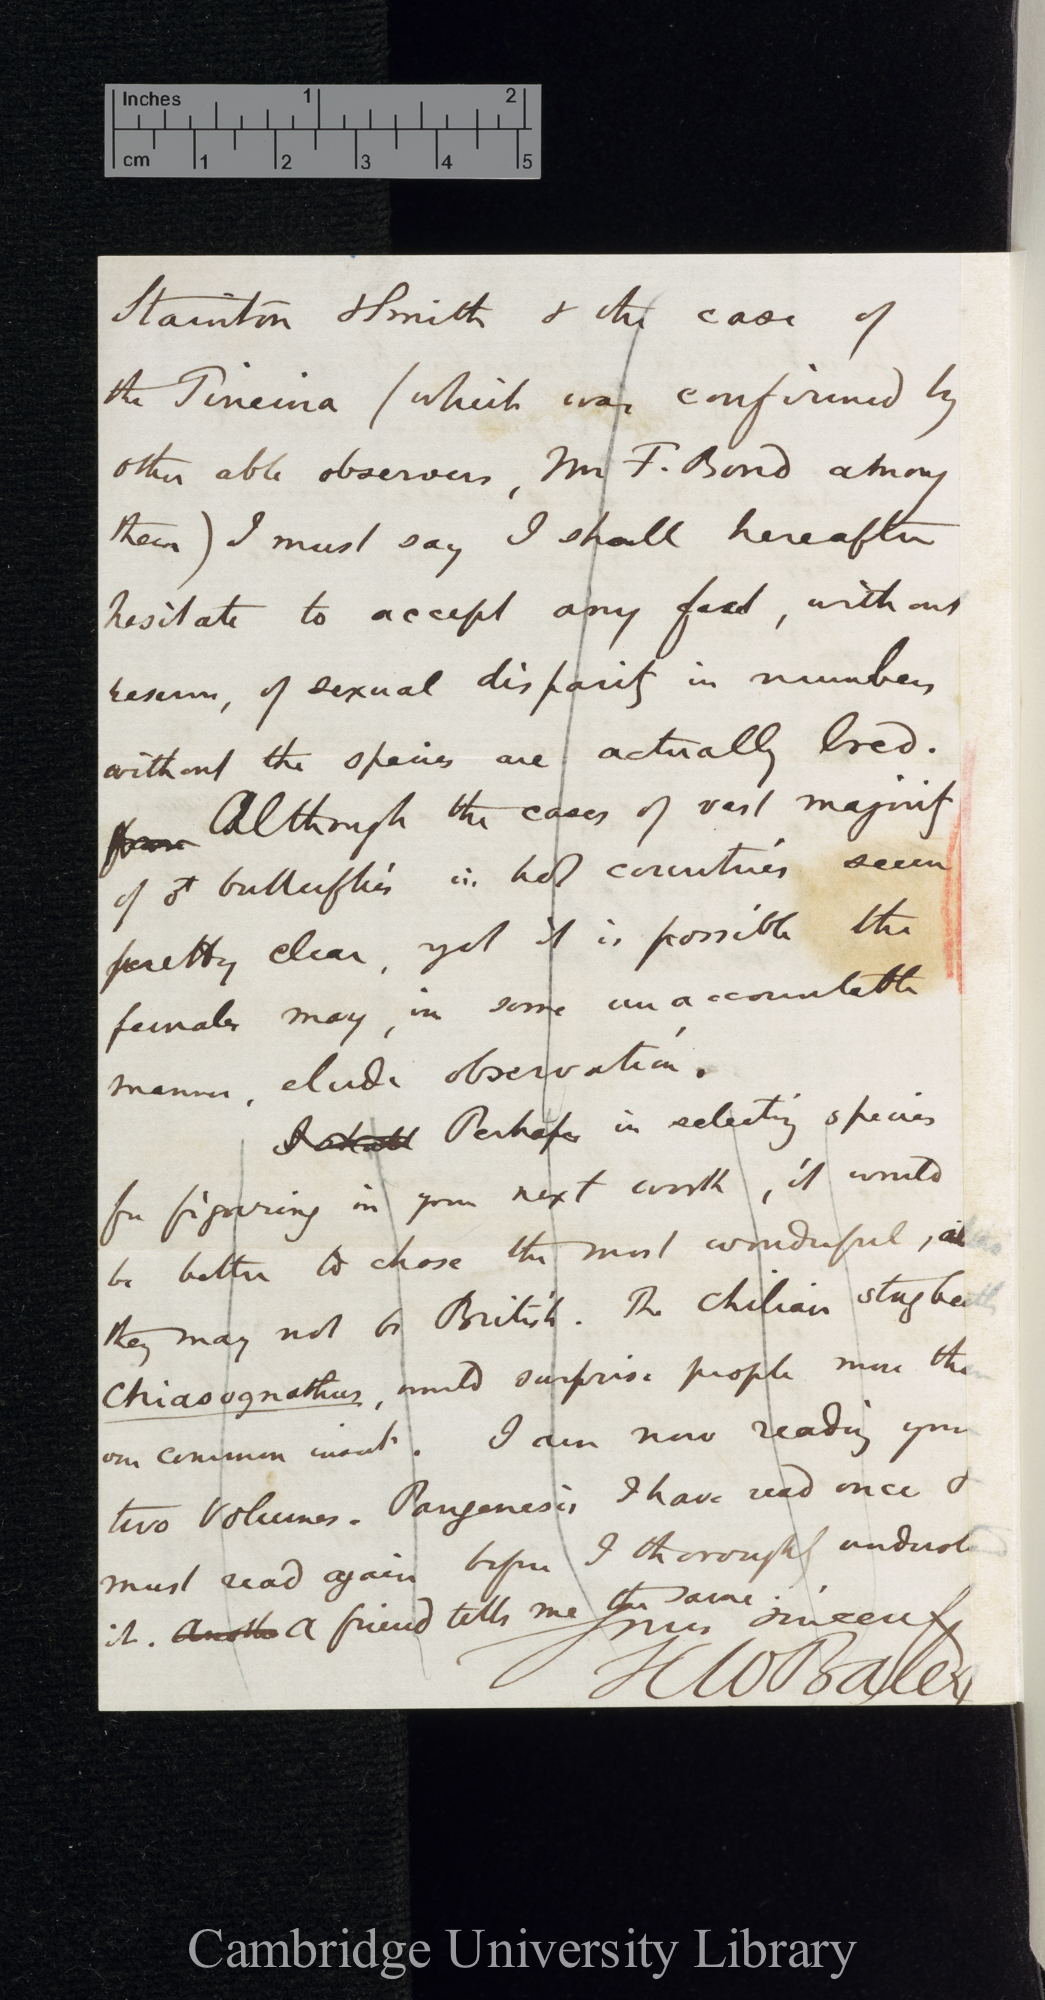 Inches 1 2
cm 1 2 3 4 5
Stainton & Smith & the case of
the Tineina (which was confirmed by
other able observers, Mr F. Bond among
them) I must say I shall hereafter
hesitate to accept any fact, without
reserve, of sexual disparity in numbers
without the species are actually bred.
Although the cases of vast majority
of ♂ butterflies in hot countries seem
pretty clear, yet it is possible the
females may, in some unaccountable
manner, elude observation.
I shall Perhaps in selecting species
for figuring in your next work, it would
be better to chose the most wonderful,
they may not be British. The Chilian stag beetle
Chiasognathus, would surprise people more than
our common insect. I am now reading your
two Volumes. Pangenesis I have read once &
must read again before I thoroughly understand
it. Another A friend tells me the same.
Yours sincerely
H W Bates
Cambridge University Library